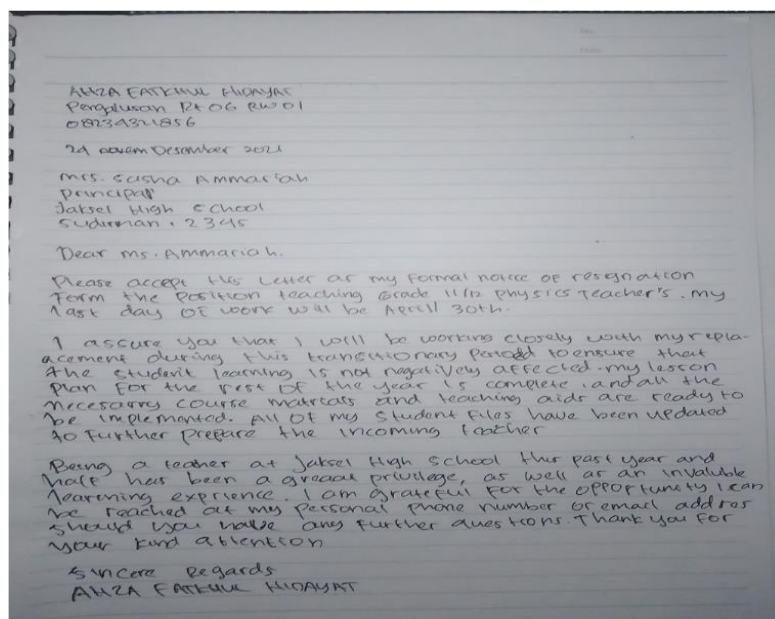 AHZA FATKHUL HIDAYAT
Pengalusan Rt 06 RW 01
08234321856
24 Desember 2021
Mrs. Sasha Ammariah
Principal
Jaksel High School
Sudirman, 2345
Dear ms. Ammariah.
Please accept this Letter as my Formal notice of resignation
Form the position teaching Grade 11/12 physics Teacher's. my
last day of work will be Aprill 30th.
I assure you that I will be working closely with my repla-
acement during this transitionary to ensure that
the student learning is not negatively affected. my lesson
plan for the rest of the year is complete. and all the
necesarry course and teaching aids are ready to
be implemented. All of my student files have been updated
to further prepare the incoming teacher
Being a teacher at Jaksel High School this past year and
half has been a privilege, as well as an invaluble
learning exprience. I am grateful for the opportunity I can
be reached at my personal phone number or email addres
should you have any further questions. Thank you for
your kind attention
Sincere Regards
AHZA FATKHUL HIDAYAT